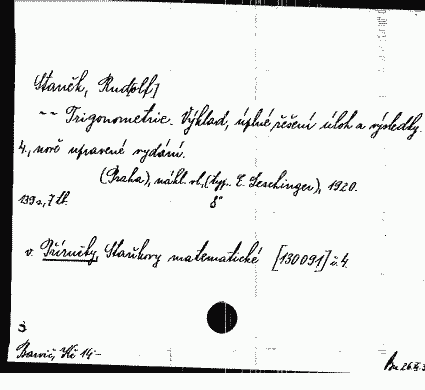 Staněk, Rud[olf]
-- Trigonometrie. Výklad, úplné řešení úloh a výsledky.
4., nově upravené vydání.
(Praha), nákl. vl., (typ. E. Leschinger), 1920.
139 s., 7 tb. 8°
v. Příručky, Staňkovy matematické [130091] č. 4.
Kč 14-